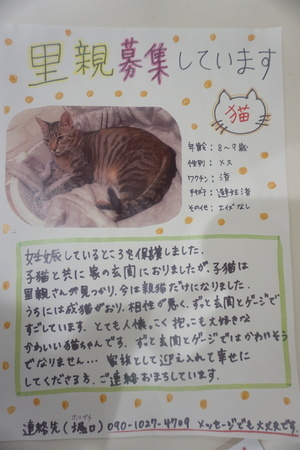 里親募集しています
猫
年齢：8～9歳
性別：メス
ワクチン：済
手術：避妊済
その他：エイズなし
妊娠しているところを保護しました。
子猫と共に家の玄関におりましたが、子猫は
里親さんが見つかり、今は親猫だけになりました。
うちには成猫がおり、相性が悪く、ずっと玄関とゲージで
すごしています。とても人懐っこく抱っこも大好きな
かわいい猫ちゃんです。ずっと玄関とゲージではかわいそう
でなりません… 家族として迎え入れて幸せに
してくださる方、ご連絡おまちしています。
連絡先(堀口) 090-1027-4709 メッセージでも大丈夫です。